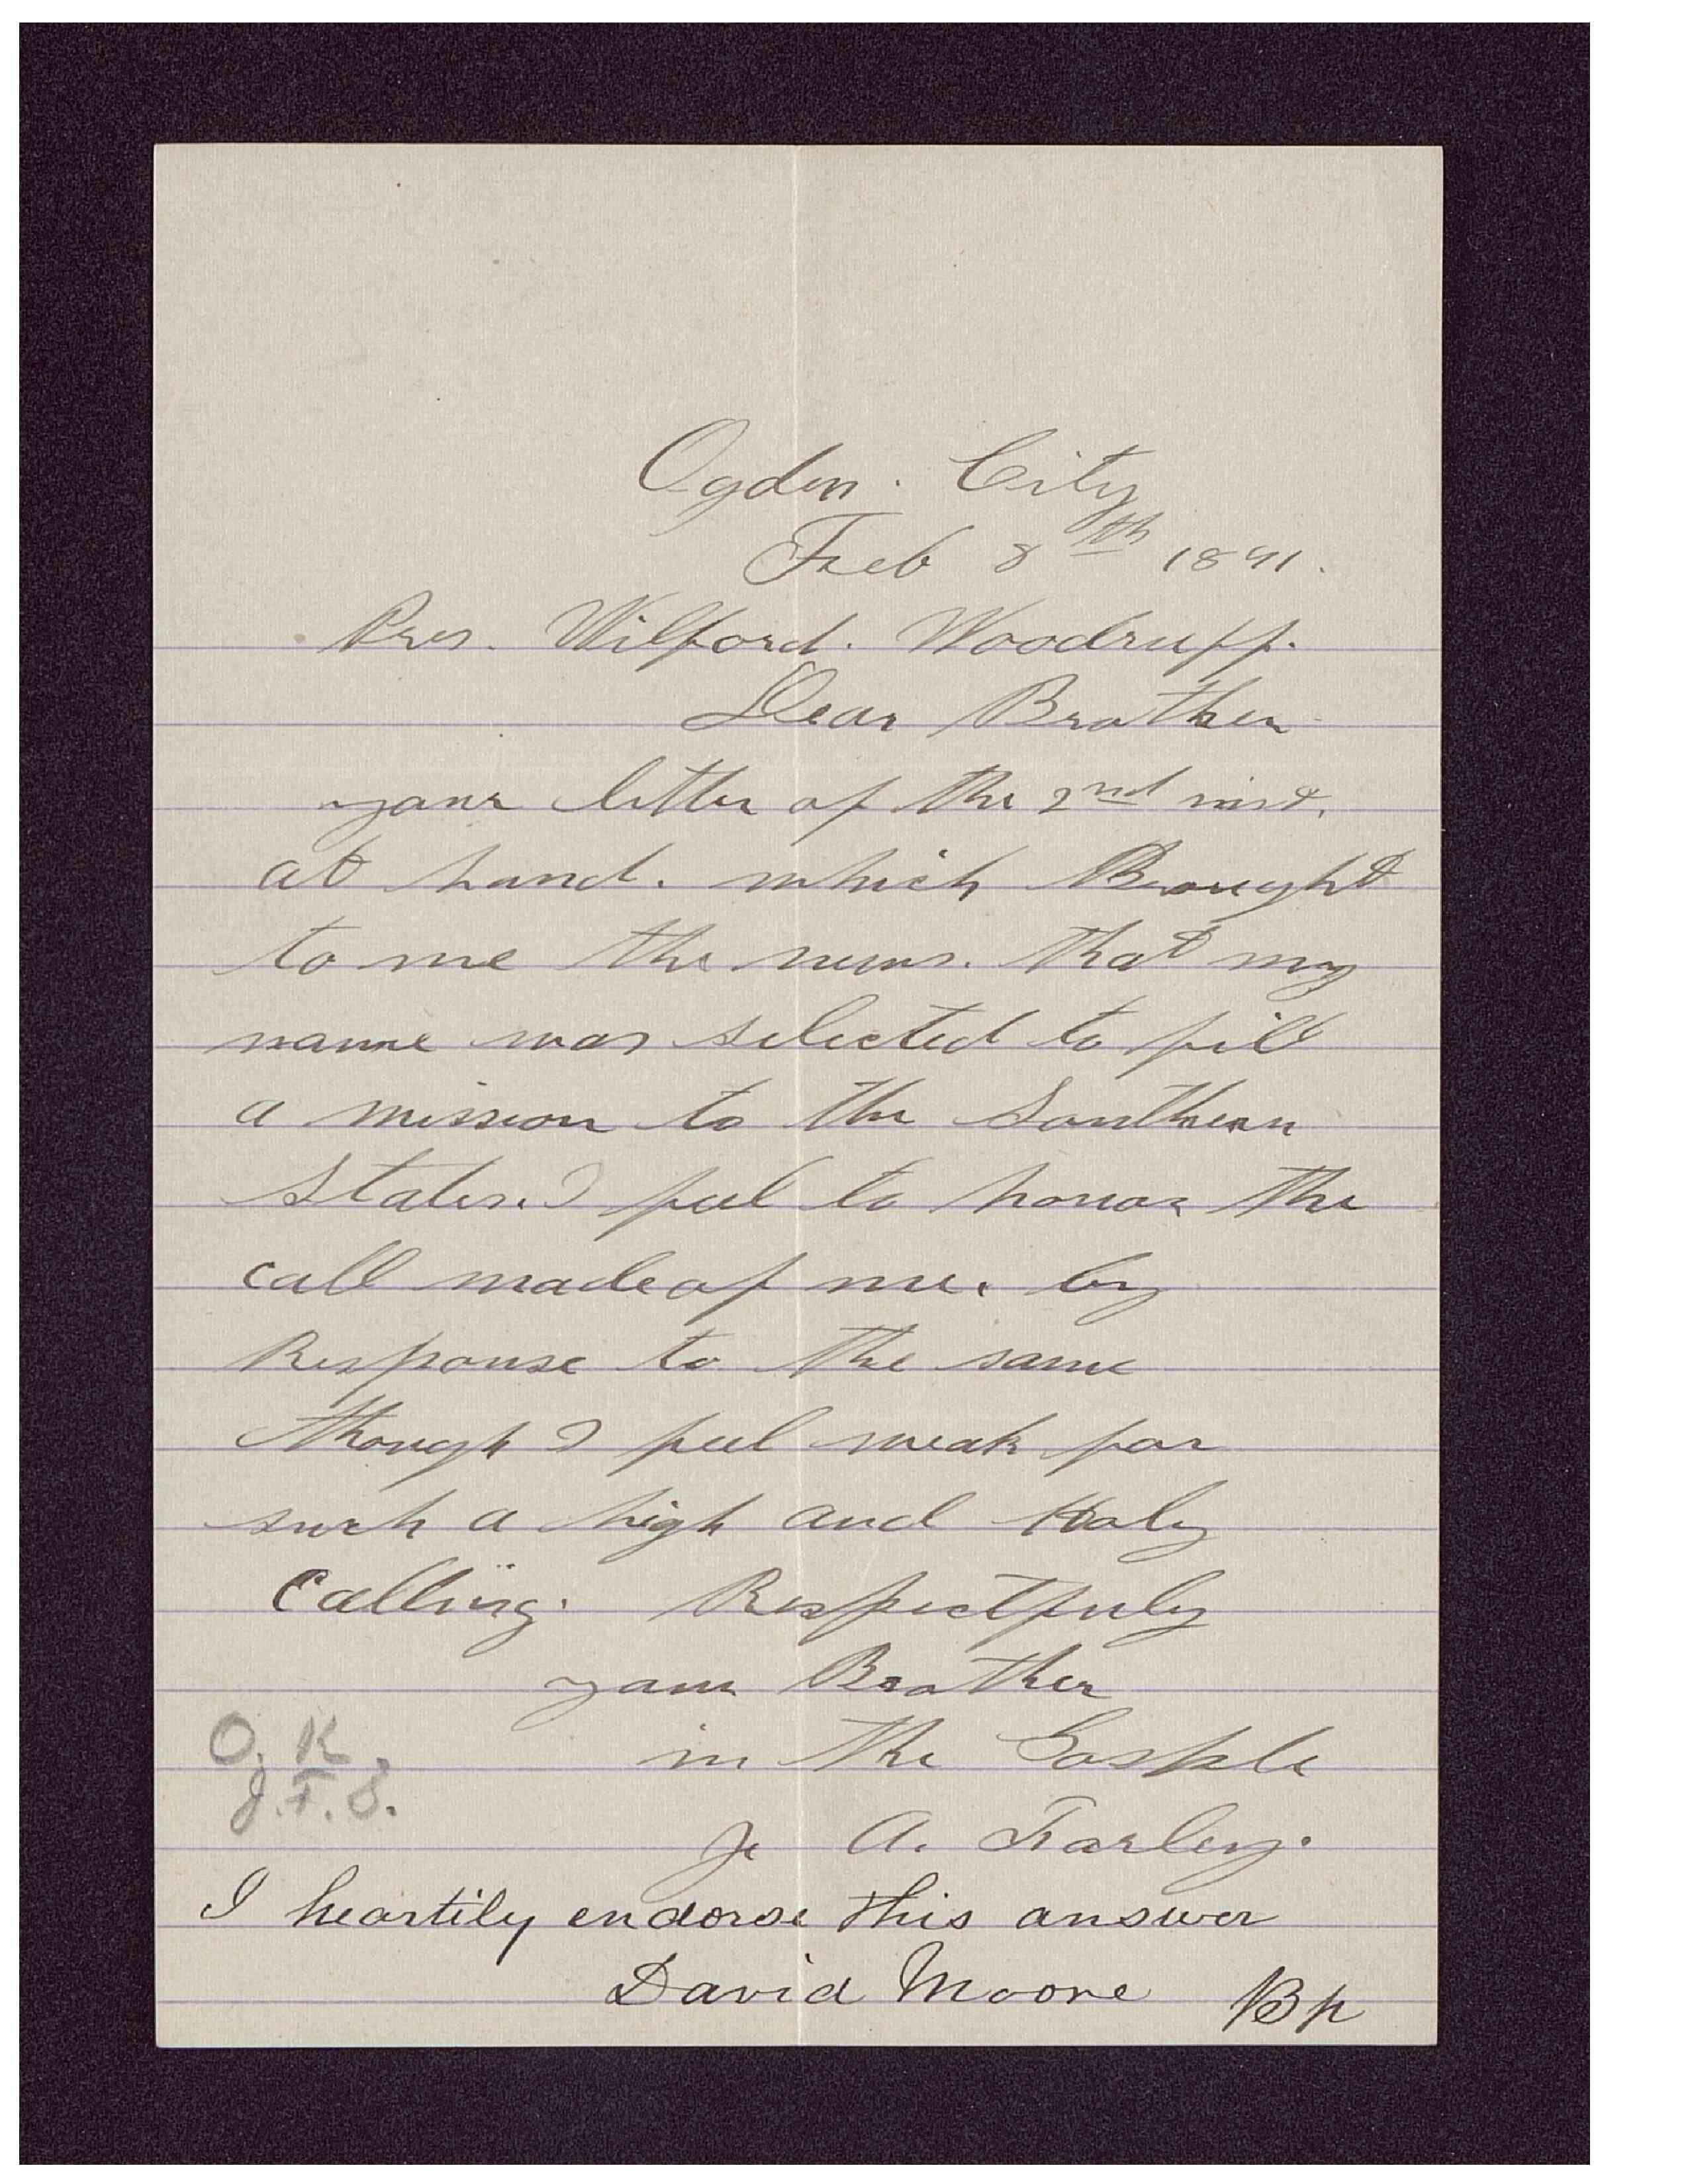 Ogden. City
Feb 8th 1891.
Pres. Wilford. Woodruff.
Dear Brother
your letter of the 2nd inst.
at hand. which Brought
to me the news. that my
name was selected to fill
a mission to the Southern
States. I feel to honor the
call made of me. by
Response to the same
though I feel weak for
such a high and Holy
Calling. Respectfuly
your Brother
in the Gosple
J. A. Farley.
O. K.
J. F. S.
I heartily endorse this answer
David Moore Bp